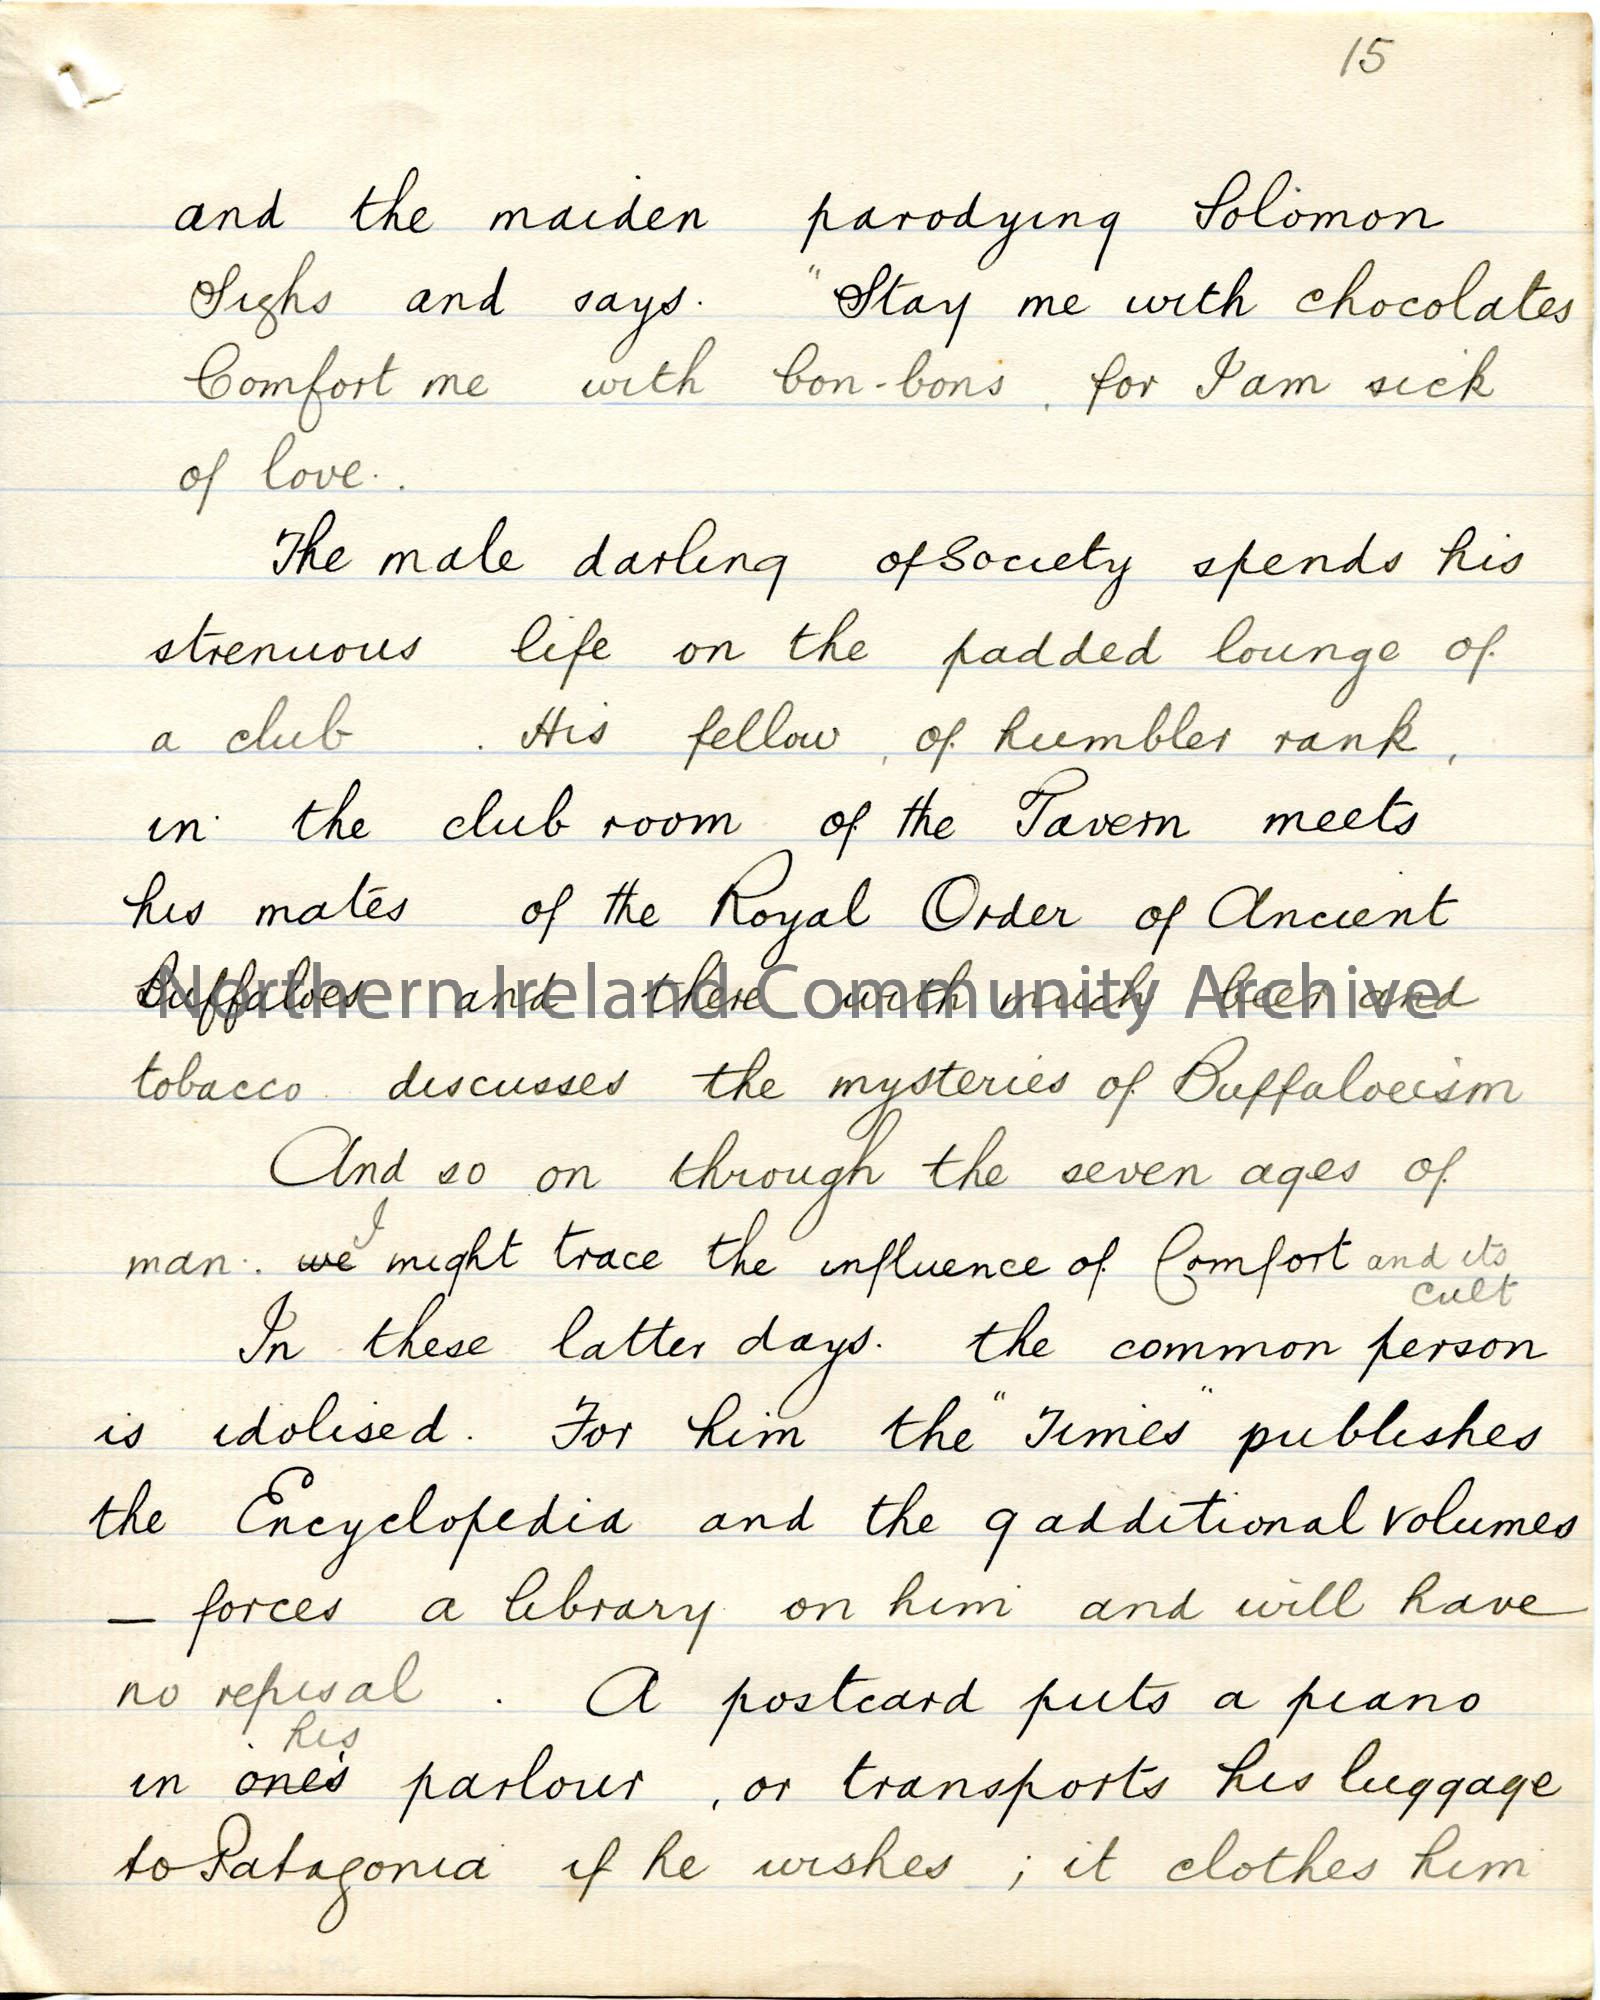 15
and the maiden parodying Solomon
Sighs and says. "Stay me with chocolates
Comfort me with bon-bons, for I am sick
of love.
The male darling of Society spends his
strenuous life on the padded lounge of
a club. His fellow, of humbler rank,
in the club room of the Tavern meets
his mates of the Royal Order of Ancient
Buffaloes and there with much beer and
Northern Ireland Community Archive
tobacco discusses the mysteries of Buffaloeism
And so on through the seven ages of
man. we I might trace the influence of Comfort and its
cult
In these latter days. the common person
is idolised. For him the "Times" publishes
the Encyclopedia and the 9 additional volumes
— forces a library on him and will have
no refusal. A postcard puts a piano
his
in one's parlour, or transports his luggage
to Patagonia if he wishes; it clothes him